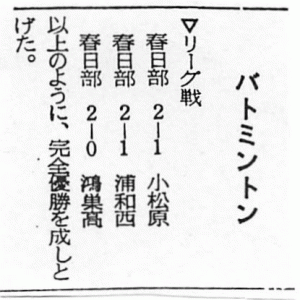 バトミントン
▽リーグ戦
春日部 2―1 小松原
春日部 2―1 浦和西
春日部 2―0 鴻巣高
以上のように、完全優勝を成しと
げた。